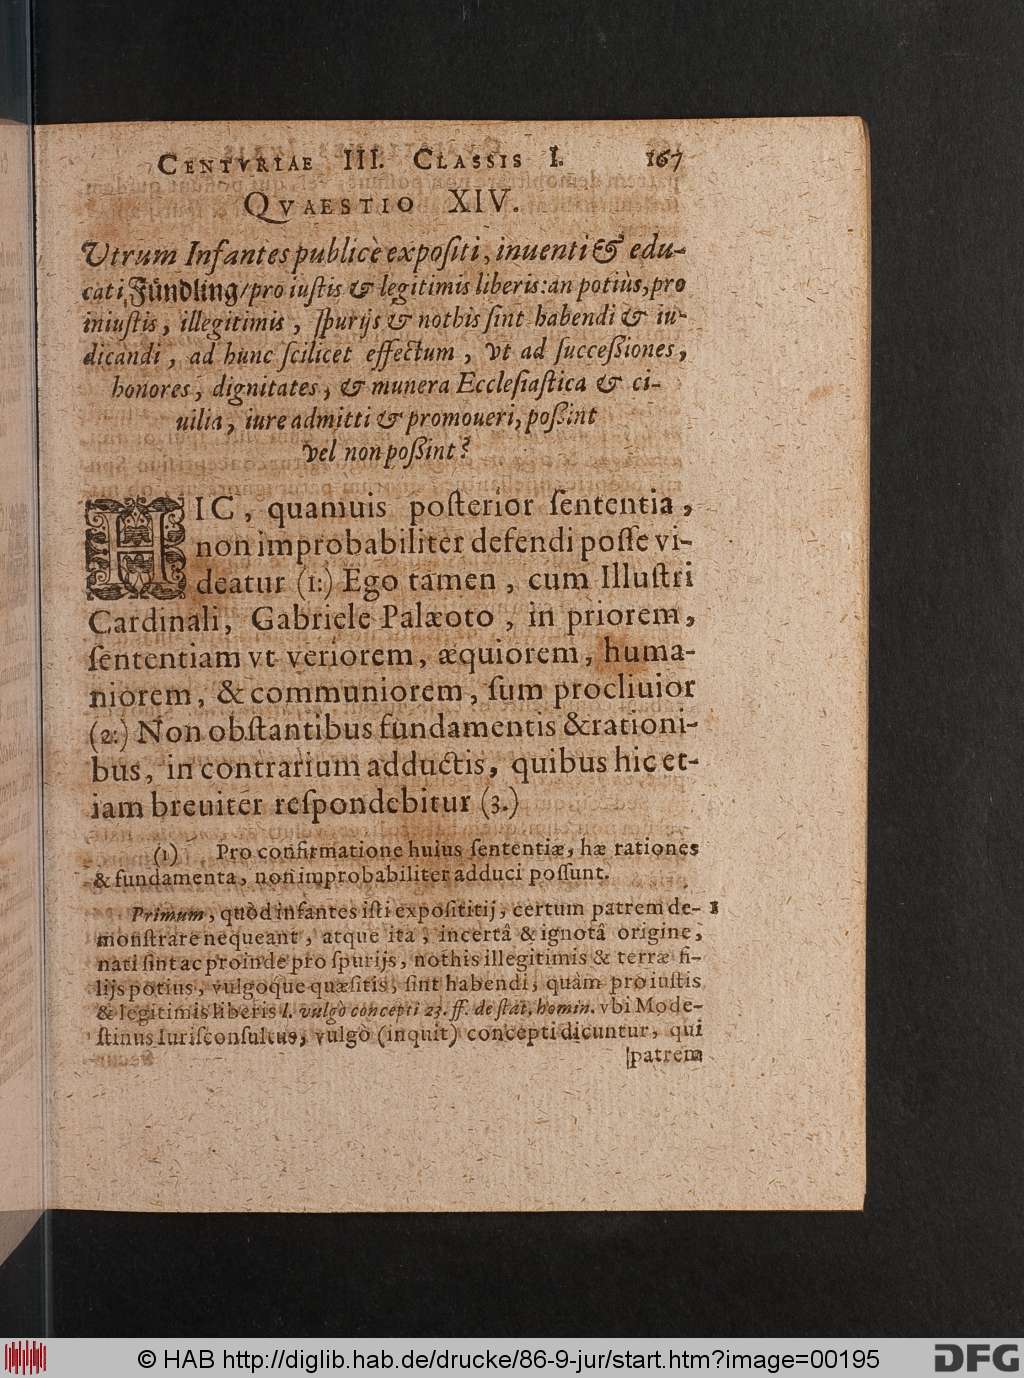 CENTVRIAE III. CLASSIS I. 167
QVAESTIO XIV.
Vtrum Infantes publicè expoſiti, inuenti & edu-
cati, Fündling/ pro iuſtis & legitimis liberis: an potiùs, pro
iniuſtis, illegitimis, ſpurijs & nothis ſint habendi & iu-
dicandi, ad hunc ſcilicet effectum, vt ad ſucceſſiones,
honores, dignitates, & munera Eccleſiaſtica & ci-
uilia, iure admitti & promoueri, poſſint
vel non poſſint?
HIC, quamuis poſterior ſententia,
non improbabiliter defendi poſſe vi-
deatur (1:) Ego tamen, cum Illuſtri
Cardinali, Gabriele Palæoto, in priorem,
ſententiam vt veriorem, æquiorem, huma-
niorem, & communiorem, ſum procliuior
(2:) Non obſtantibus fundamentis & rationi-
bus, in contrarium adductis, quibus hic et-
iam breuiter reſpondebitur (3.)
(1) Pro confirmatione huius ſententiæ, hæ rationes
& fundamenta, non improbabiliter adduci poſſunt.
Primum, quòd infantes iſti expoſititij, certum patrem de- 1
monſtrare nequeant, atque ita, incertâ & ignotâ origine,
nati ſint ac proinde pro ſpurijs, nothis illegitimis & terræ fi-
lijs potius, vulgoque quæſitis, ſint habendi, quàm pro iuſtis
& legitimis liberis l. vulgò concepti 23. ff. de ſtat. homin. vbi Mode-
ſtinus Iuriſconſultus, vulgò (inquit) concepti dicuntur, qui
patrem
© HAB http://diglib.hab.de/drucke/86-9-jur/start.htm?image=00195
DFG